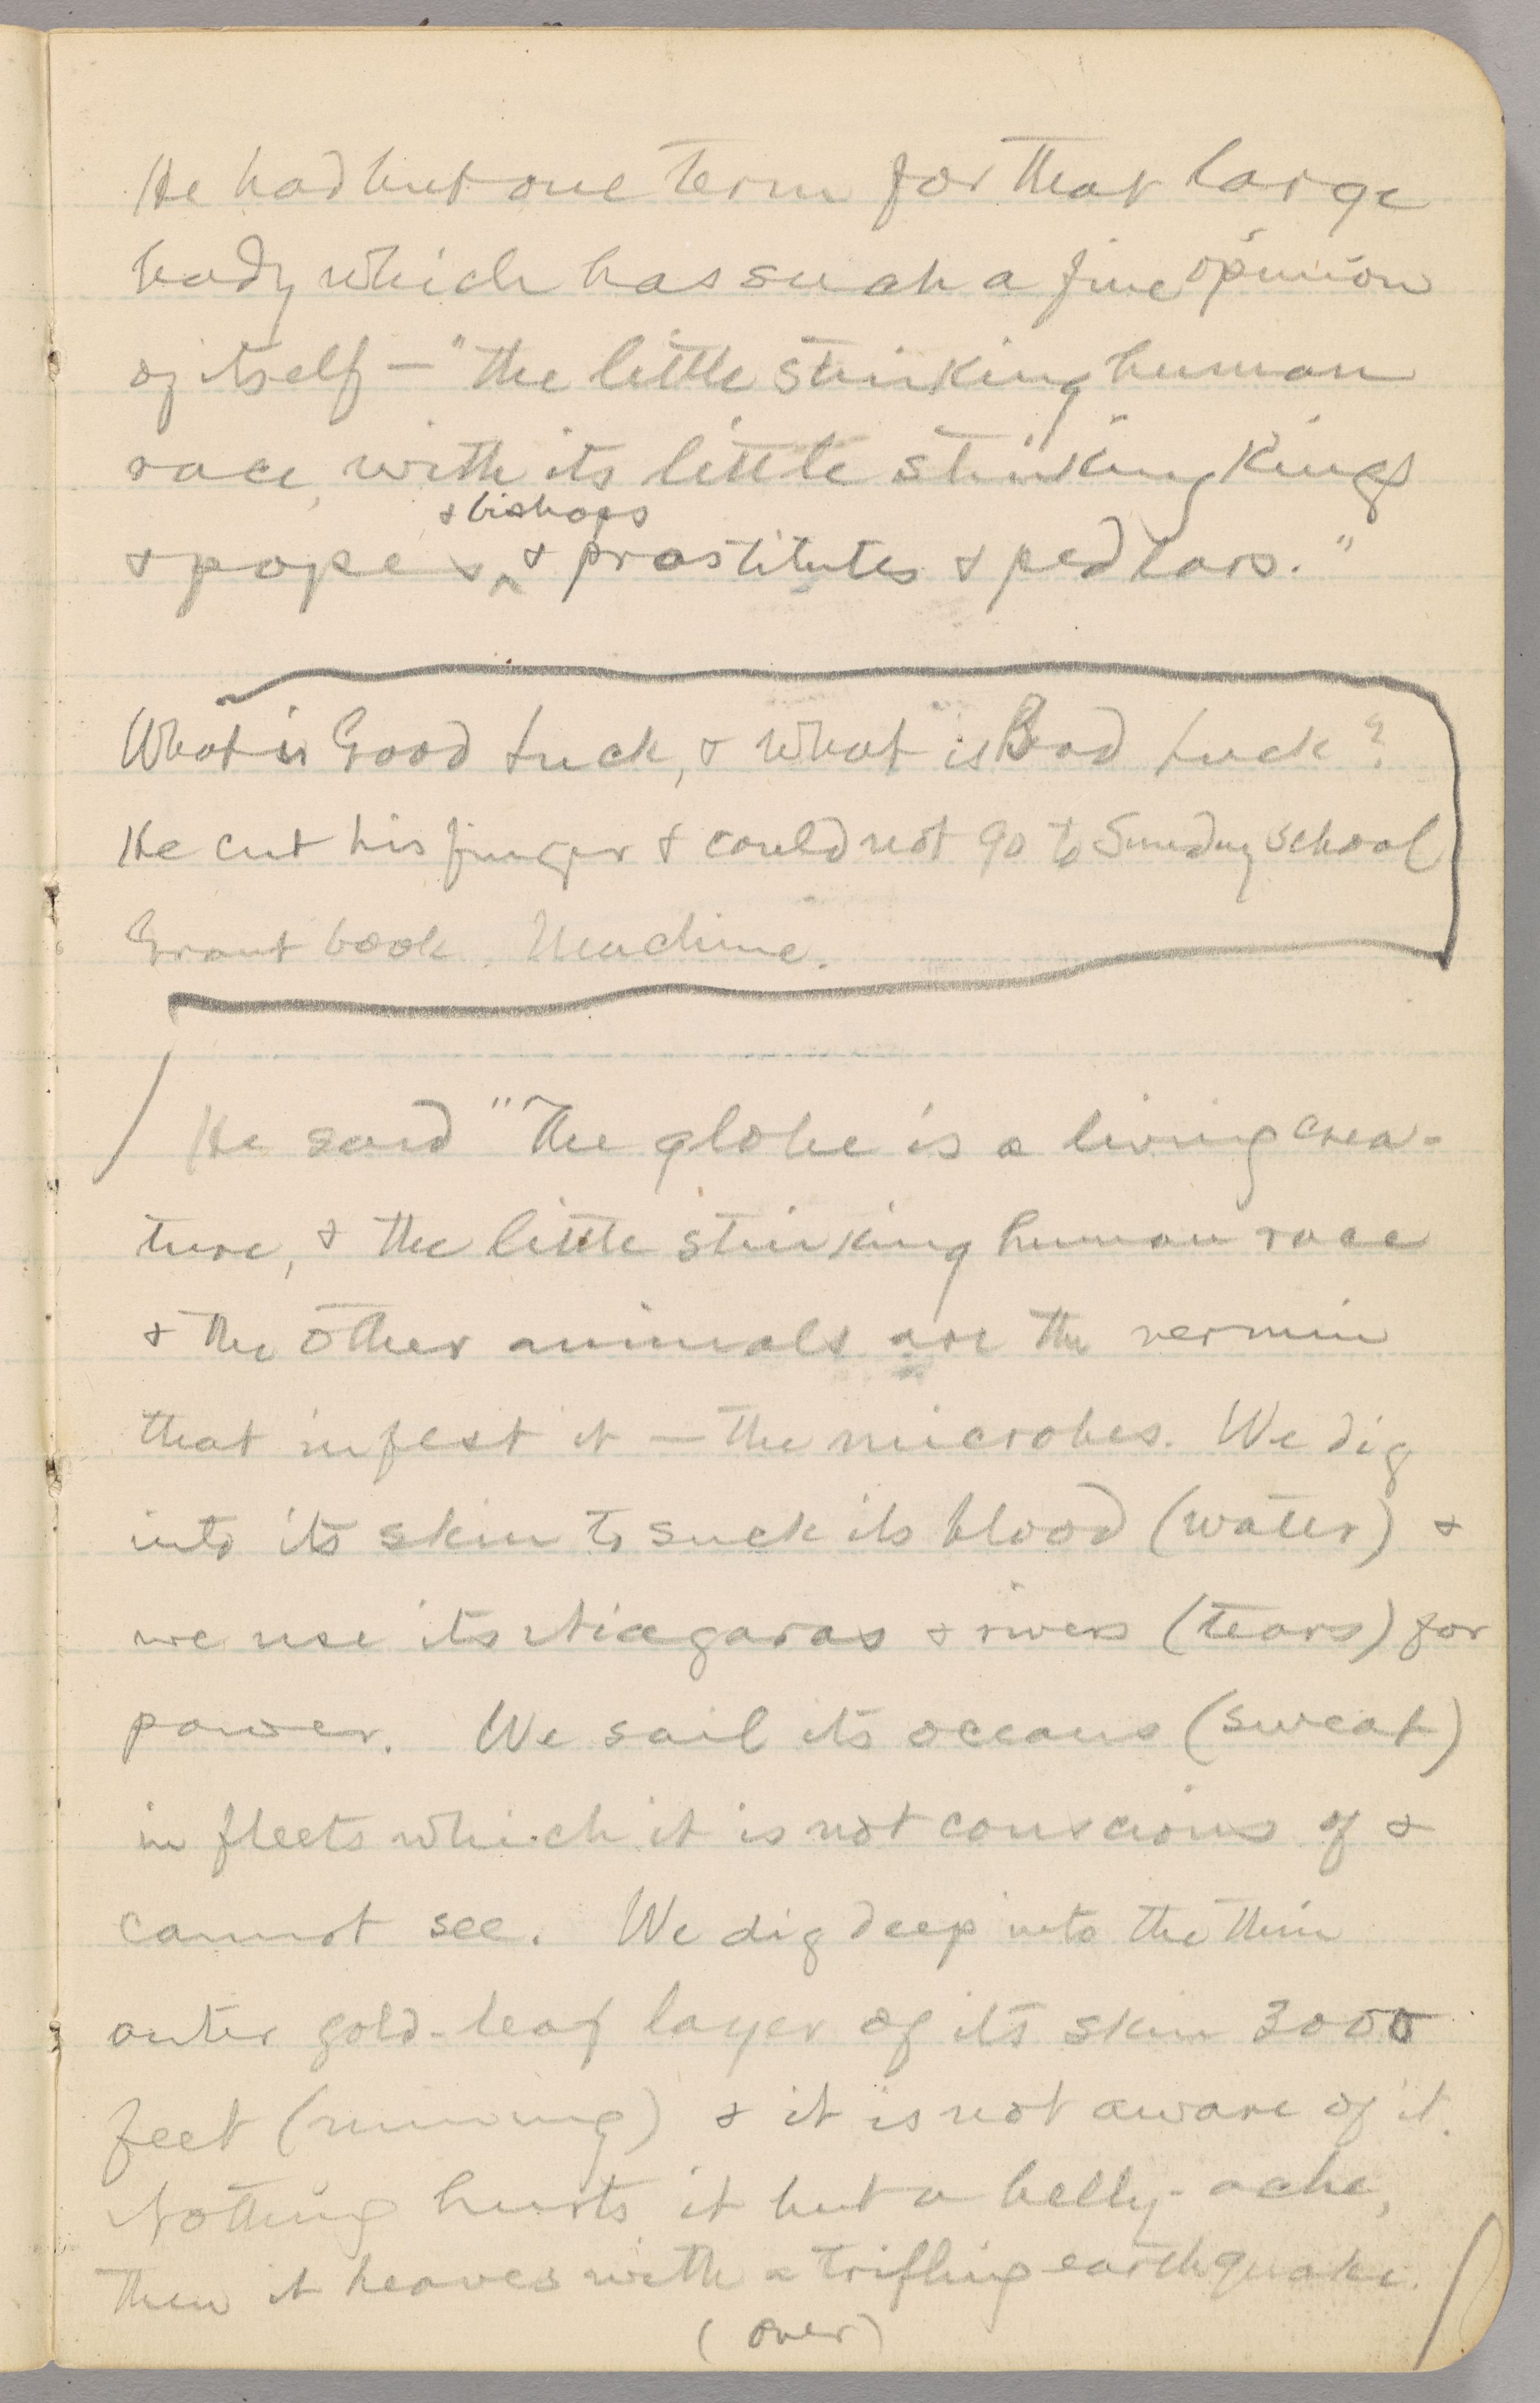 He had but one term for that large
body which has such a fine opinion
of itself — "the little stinking human
race, with its little stinking kings
& bishops
& popes, & prostitutes & pedlars."
What is Good Luck, & what is Bad Luck?
He cut his finger & could not go to Sunday school
Grant book. Machine.
He said "The globe is a living crea-
ture, & the little stinking human race
& the other animals are the vermin
that infest it — the microbes. We dig
into its skin to suck its blood (water) &
we use its Niagaras & rivers (tears) for
power. We sail its oceans (sweat)
in fleets which it is not conscious of &
cannot see. We dig deep into the thin
outer gold-leaf layer of its skin 3000
feet (mining) & it is not aware of it.
Nothing hurts it but a belly-ache,
then it heaves with a trifling earthquake.
(over)